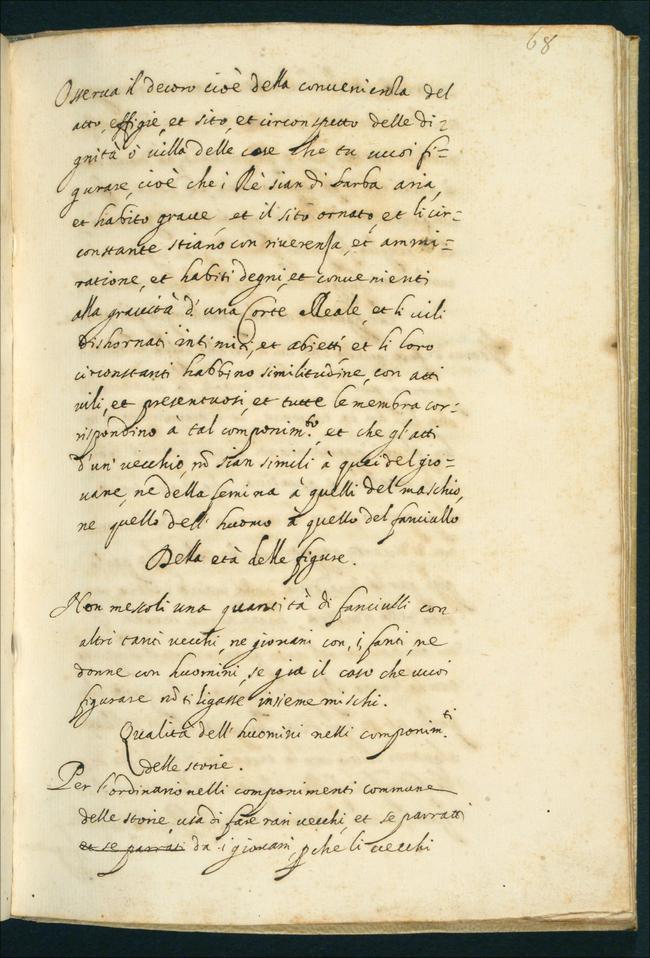 68
Osserva il decoro cioè della convenienza del
atto, effigie, et sito, et circonspetto delle di=
gnità ò viltà delle cose che tu vuoi fi=
gurare, cioè che i Rè sian di barba aria,
et habito grave et il sito ornato, et li cir=
constante stiano con riverenza, et ammi=
ratione, et habiti degni, et convenienti
alla gravità d'una Corte Reale, et li vili
dishornati intimidi, et abietti et li loro
circonstanti habbino similitudine, con atti
vili, et presentuosi, et tutte le membra cor=
rispondino à tal componim.to, et che gl'atti
d'un vecchio, nõ sian simili à quei del gio=
vane, nè della femina à quelli del maschio,
ne quello dell'huomo a quello del fanciullo
Della età delle figure.
Non mescoli una quantità di fanciulli con
altri tanti vecchi, ne giovani con, i, fanti, ne
donne con huomini, se già il caso che vuoi
figurare nõ ti ligasse insieme mischi.
Qualità dell'huomini nelli componim.ti
delle storie.
Per l'ordinario nelli componimenti commune
delle storie, usa di fare rari vecchi, et separati
et se parrati da i giovani, pche li vecchi